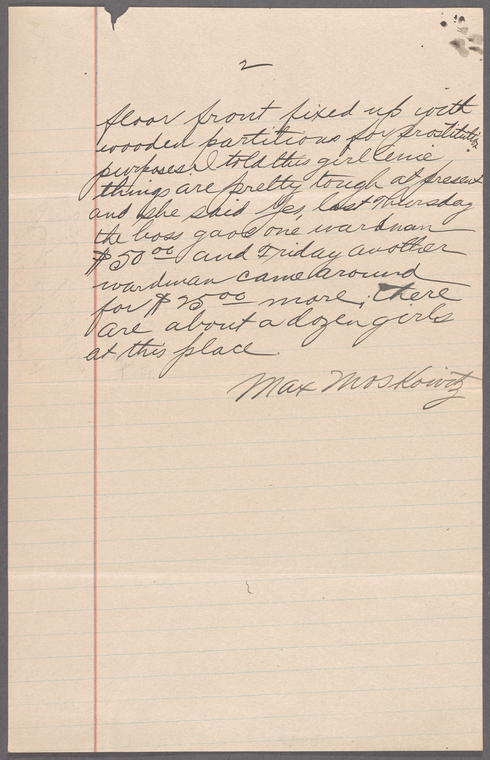 2
floor front fixed up with
wooden partitions for prostitution
purposes. I told this girl
things are pretty tough at present
and she said yes, last Thursday
the boss gave one wardman
$50 00 and Friday another
wardman came around
for $25 00 more, there
are about a dozen girls
at this place
Max Moskowitz